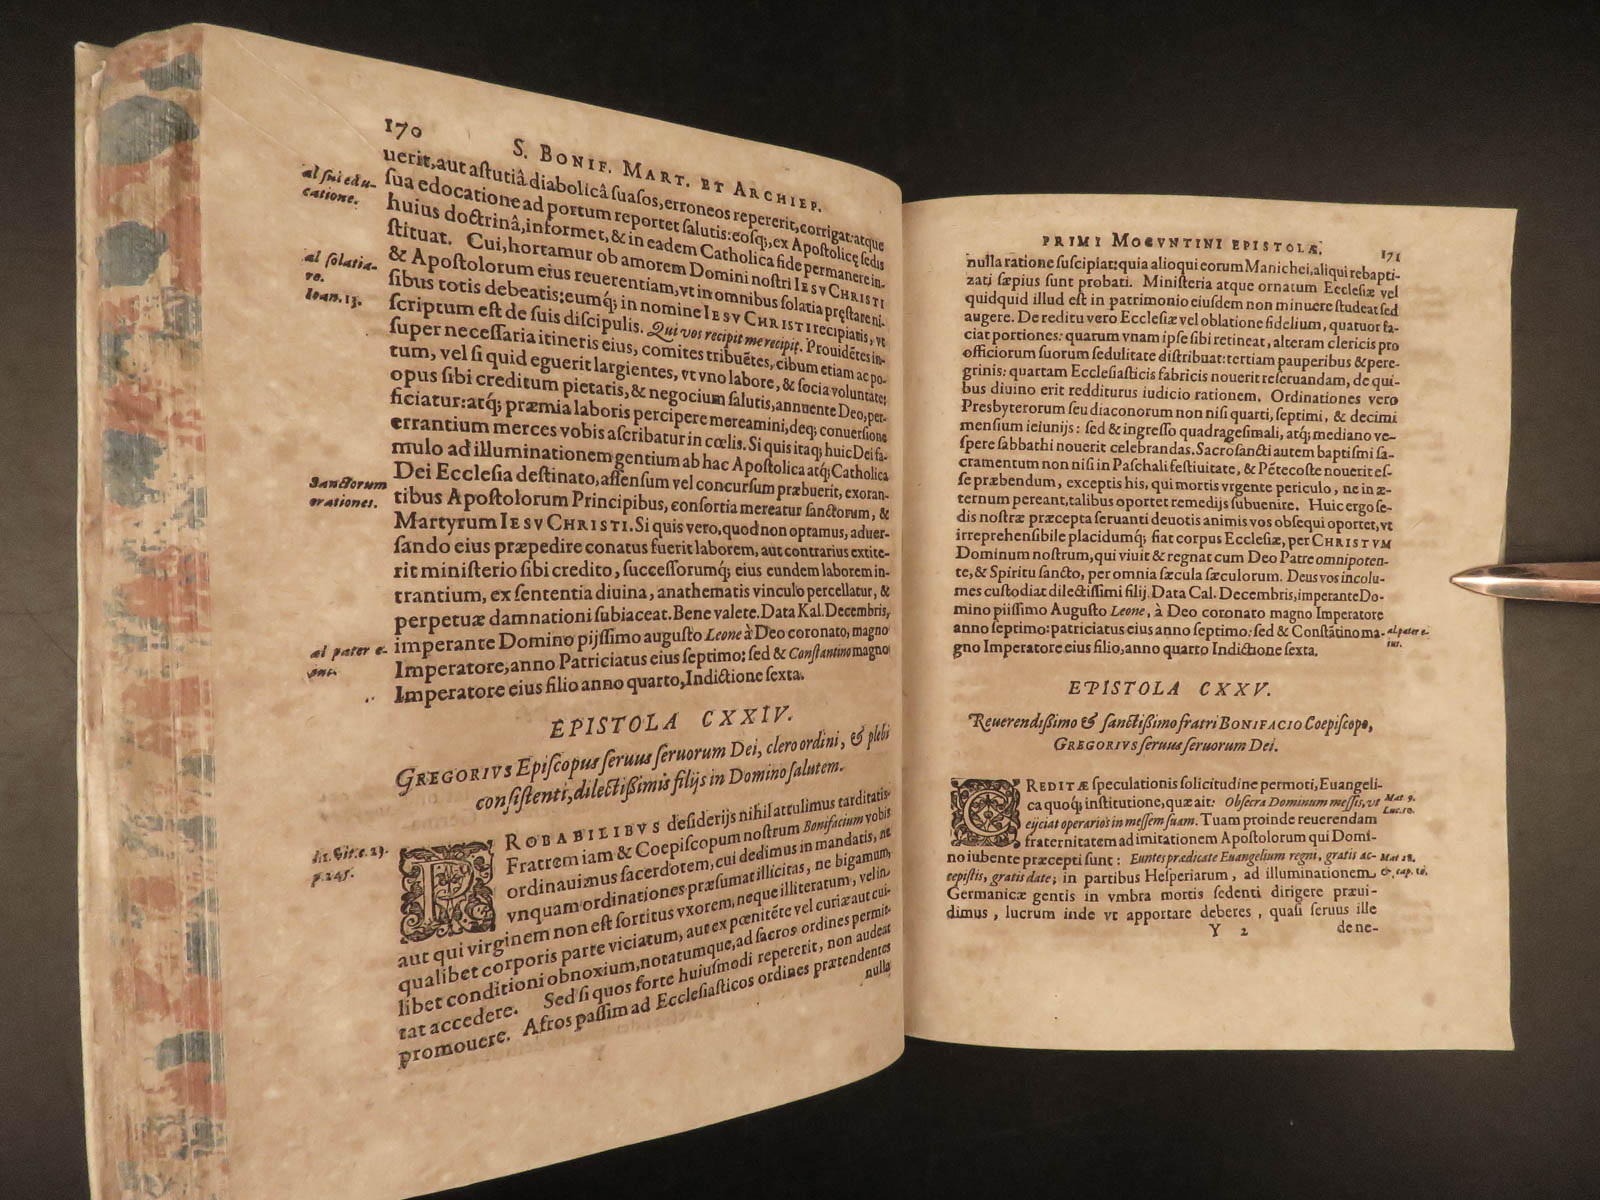 170
S. BONIF. MART. ET ARCHIEP.
uerit, aut astutiâ diabolicâ suasos, erroneos repererit, corrigat: atque
al sui edu-
catione.
sua edocatione ad portum reportet salutis: eosq;, ex Apostolicę sedis
huius doctrinâ, informet, & in eadem Catholica fide permanere in-
stituat. Cui, hortamur ob amorem Domini nostri IESV CHRISTI
al solatia-
re.
& Apostolorum eius reuerentiam, vt in omnibus solatia pręstare ni-
sibus totis debeatis: eumq; in nomine IESV CHRISTI recipiatis, vt
Ioan. 13.
scriptum est de suis discipulis. Qui vos recipit me recipit. Prouidētes in-
super necessaria itineris eius, comites tribuētes, cibum etiam ac po-
tum, vel si quid eguerit largientes, vt vno labore, & socia voluntate;
opus sibi creditum pietatis, & negocium salutis, annuente Deo, per-
ficiatur: atq; præmia laboris percipere mereamini, deq; conuersione
errantium merces vobis ascribatur in cœlis. Si quis itaq; huic Dei fa-
mulo ad illuminationem gentium ab hac Apostolica atq; Catholica
Dei Ecclesia destinato, assensum vel concursum præbuerit, exoran-
Sanctorum
orationes.
tibus Apostolorum Principibus, consortia mereatur sanctorum, &
Martyrum IESV CHRISTI. Si quis vero, quod non optamus, aduer-
sando eius præpedire conatus fuerit laborem, aut contrarius extite-
rit ministerio sibi credito, successorumq; eius eundem laborem in-
trantium, ex sententia diuina, anathematis vinculo percellatur, &
perpetuæ damnationi subiaceat. Bene valete. Data Kal. Decembris,
imperante Domino pijssimo augusto Leone à Deo coronato, magno
al pater e-
Imperatore, anno Patriciatus eius septimo; sed & Constantino magno
Imperatore eius filio anno quarto, Indictione sexta.
EPISTOLA CXXIV.
GREGORIVS Episcopus seruus seruorum Dei, clero ordini, & plebi
consistenti, dilectißimis filijs in Domino salutem.
PROBABILIBVS desiderijs nihil attulimus tarditatis.
Fratrem iam & Coepiscopum nostrum Bonifacium vobis
p. 245.
ordinauimus sacerdotem, cui dedimus in mandatis, ne
vnquam ordinationes præsumat illicitas, ne bigamum,
aut qui virginem non est sortitus vxorem, neque illiteratum, vel in
qualibet corporis parte viciatum, aut ex pœnitēte vel curiæ aut cui-
libet conditioni obnoxium, notatumque, ad sacros ordines permit-
tat accedere. Sed si quos forte huiusmodi repererit, non audeat
promouere. Afros passim ad Ecclesiasticos ordines prætendentes
nulla
PRIMI MOGVNTINI EPISTOLÆ.
171
nulla ratione suscipiat: quia alioqui eorum Manichei, aliqui rebapti-
zati sæpius sunt probati. Ministeria atque ornatum Ecclesiæ vel
quidquid illud est in patrimonio eiusdem non minuere studeat sed
augere. De reditu vero Ecclesiæ vel oblatione fidelium, quatuor fa-
ciat portiones: quarum vnam ipse sibi retineat, alteram clericis pro
officiorum suorum sedulitate distribuat: tertiam pauperibus & pere-
grinis: quartam Ecclesiasticis fabricis nouerit reseruandam, de qui-
bus diuino erit redditurus iudicio rationem. Ordinationes vero
Presbyterorum seu diaconorum non nisi quarti, septimi, & decimi
mensium ieiunijs: sed & ingresso quadragesimali, atq; mediano ve-
spere sabbathi nouerit celebrandas. Sacrosancti autem baptismi sa-
cramentum non nisi in Paschali festiuitate, & Pētecoste nouerit es-
se præbendum, exceptis his, qui mortis vrgente periculo, ne in æ-
ternum pereant, talibus oportet remedijs subuenire. Huic ergo se-
dis nostræ præcepta seruanti deuotis animis vos obsequi oportet, vt
irreprehensibile placidumq; fiat corpus Ecclesiæ, per CHRISTVM
Dominum nostrum, qui viuit & regnat cum Deo Patre omnipoten-
te, & Spiritu sancto, per omnia sæcula sæculorum. Deus vos incolu-
mes custodiat dilectissimi filij. Data Cal. Decembris, imperante Do-
mino piissimo Augusto Leone, à Deo coronato magno Imperatore
anno septimo: patriciatus eius anno septimo: sed & Constātino ma-
al pater e-
ius.
gno Imperatore eius filio, anno quarto Indictione sexta.
EPISTOLA CXXV.
Reuerendißimo & sanctißimo fratri BONIFACIO Coepiscopo,
GREGORIVS seruus seruorum Dei.
CREDITÆ speculationis solicitudine permoti, Euangeli-
ca quoq; institutione, quæ ait: Obsecra Dominum messis, vt
Mat 9.
Luc. 10.
eijciat operarios in messem suam. Tuam proinde reuerendam
fraternitatem ad imitationem Apostolorum qui Domi-
no iubente præcepti sunt: Euntes prædicate Euangelium regni, gratis ac-
Mat 28.
& cap. 10.
cepistis, gratis date; in partibus Hesperiarum, ad illuminationem
Germanicæ gentis in vmbra mortis sedenti dirigere præui-
dimus, lucrum inde vt apportare deberes, quasi seruus ille
Y 2
de ne-